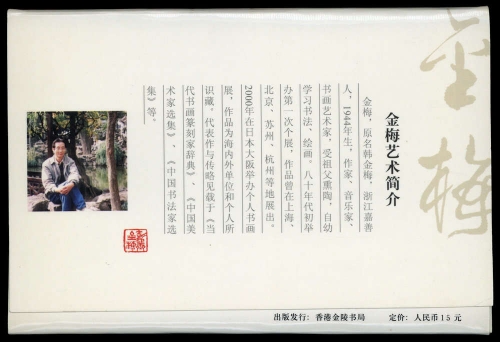 金梅
金梅艺术简介
金梅，原名韩金梅，浙江嘉善
人，1944年生，作家、音乐家、
书画艺术家，受祖父熏陶，自幼
学习书法、绘画。八十年代初举
办第一次个展，作品曾在上海、
北京、苏州、杭州等地展出。
2000年在日本大阪举办个人书画
展，作品为海内外单位和个人所
识藏。代表作与传略见载于《当
代书画篆刻家辞典》、《中国美
术家选集》、《中国书法家选
集》等。
出版发行：香港金陵书局 定价：人民币15元